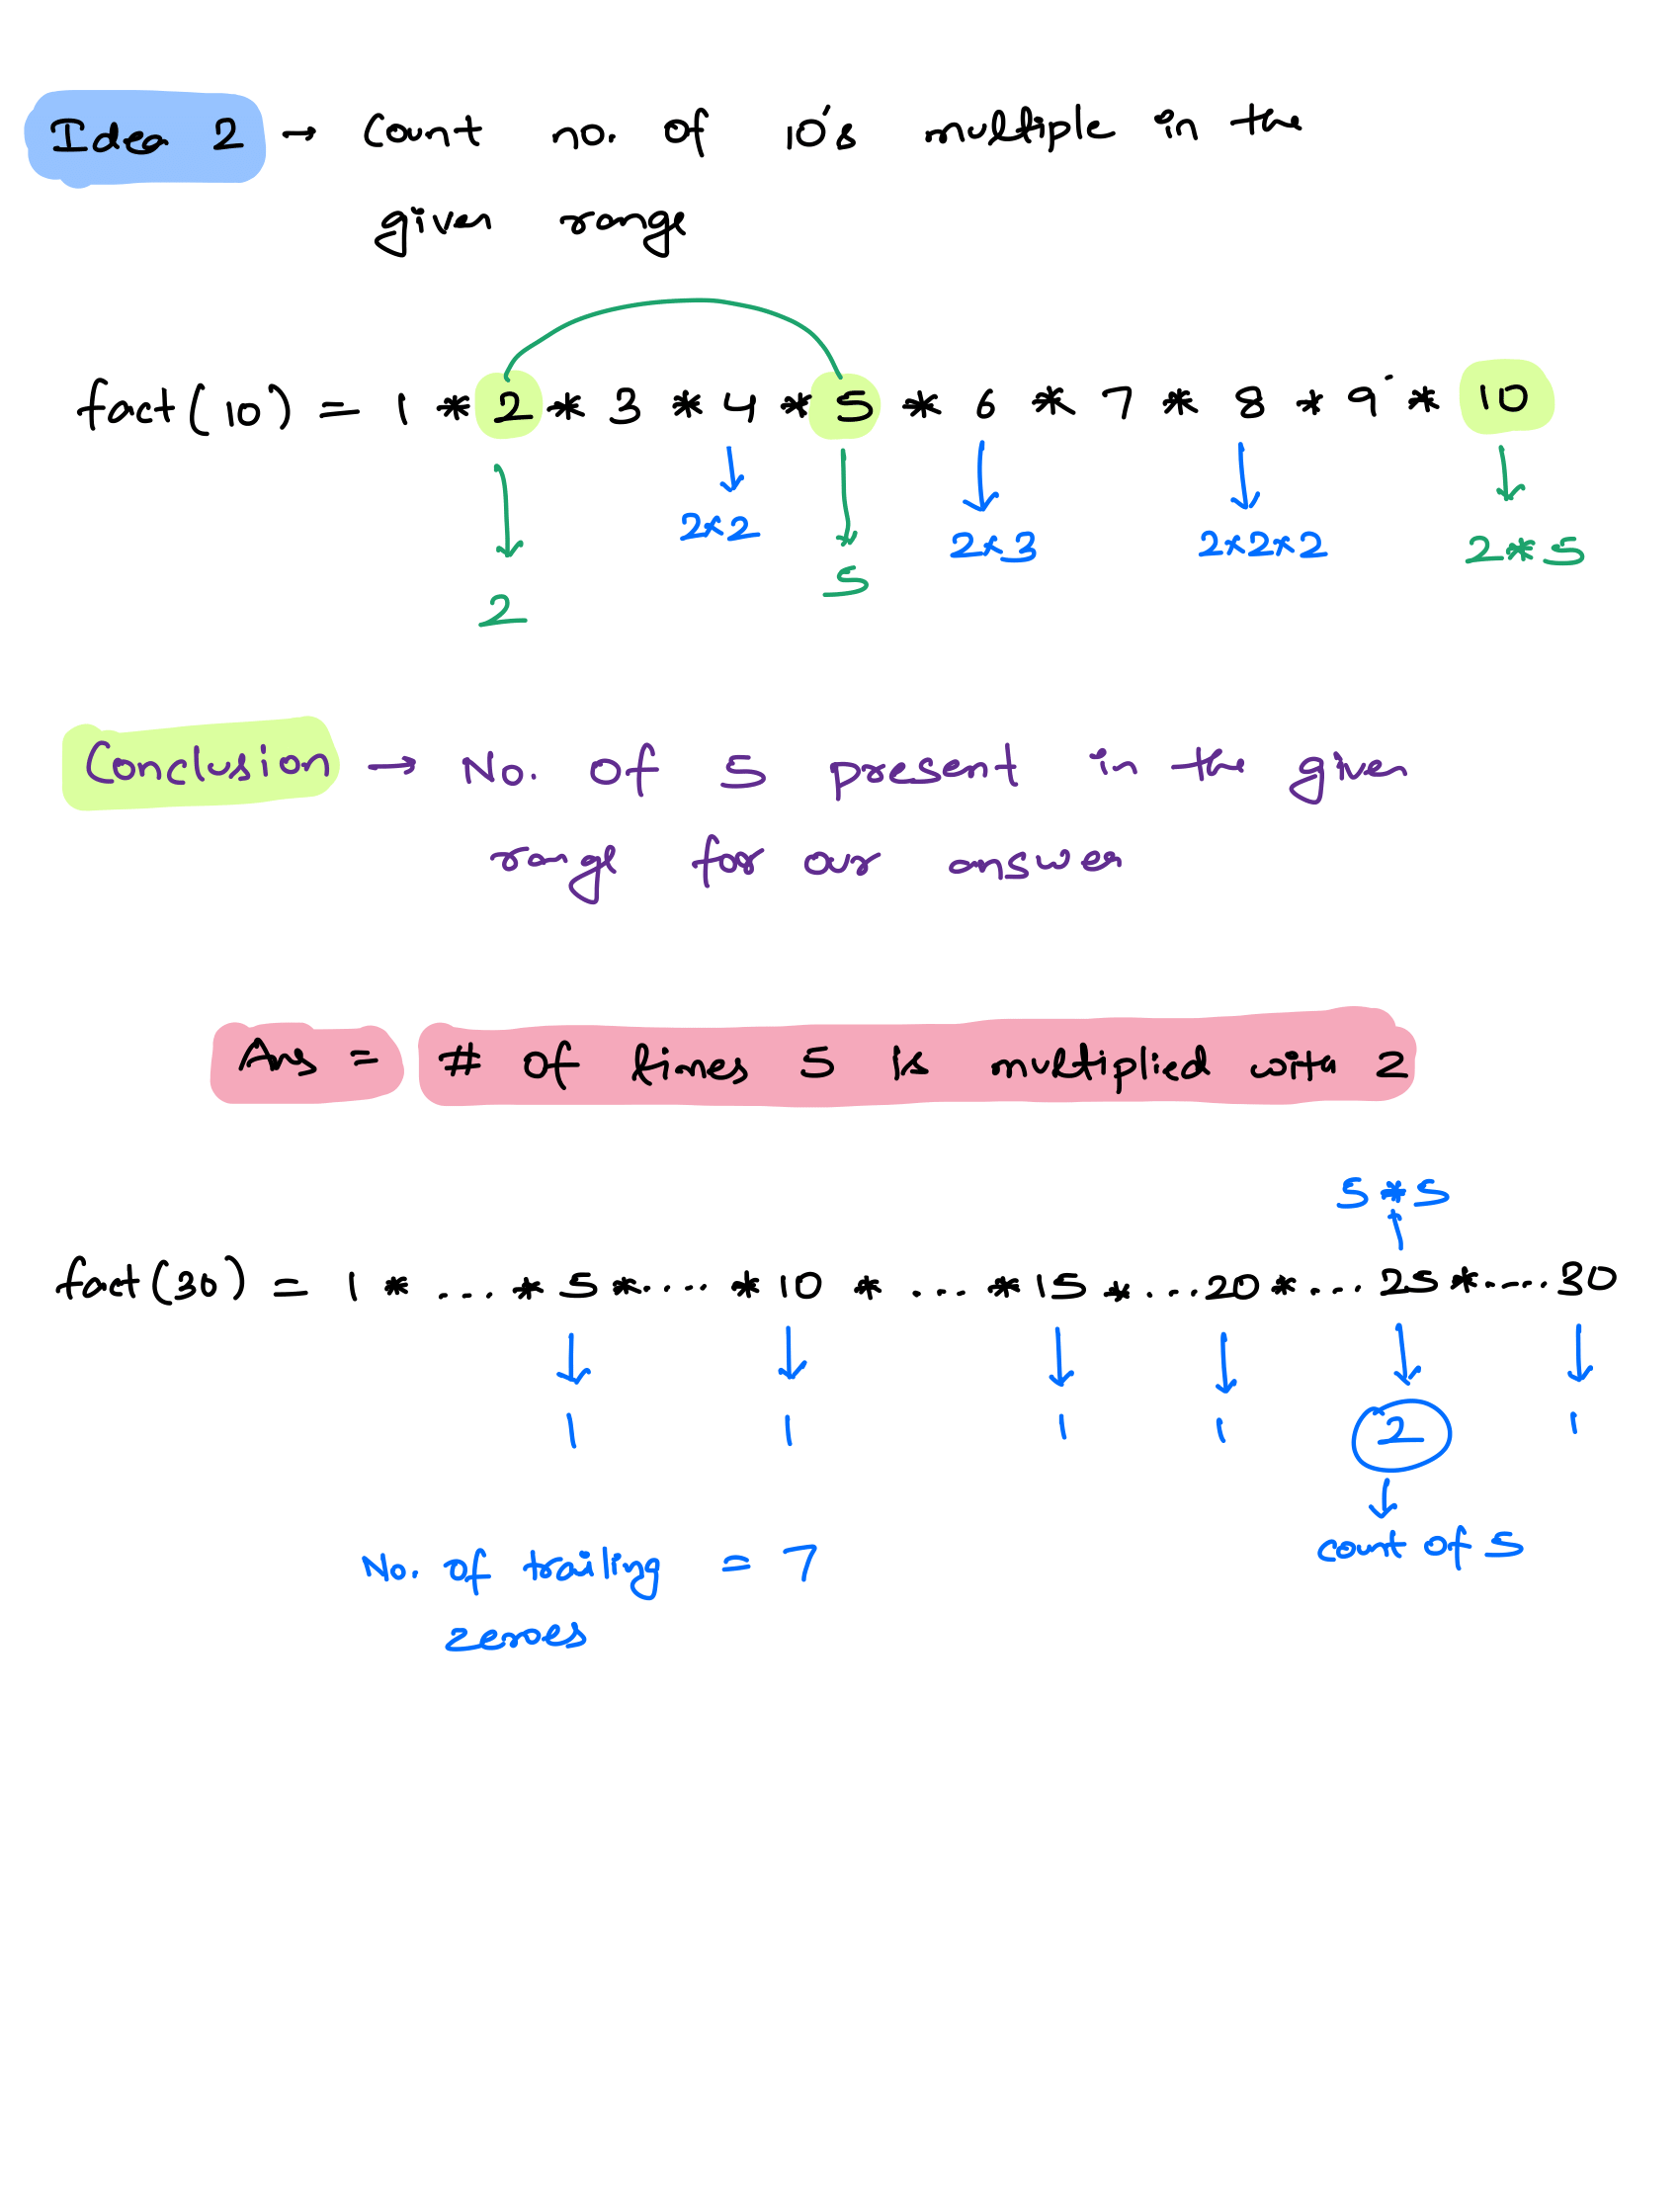 Idea 2 → Count no. of 10's multiple in the
given range
fact(10) = 1 * 2 * 3 * 4 * 5 * 6 * 7 * 8 * 9 * 10
2 2×2 5 2×3 2×2×2 2*5
Conclusion → No. of 5 present in the given
range for our answer
Ans = # of times 5 is multiplied with 2
5*5
fact(30) = 1 * ... * 5 * .... * 10 * .... * 15 * ... 20 * ... 25 * .... 30
1 1 1 1 2 1
count of 5
No. of trailing = 7
zeroes